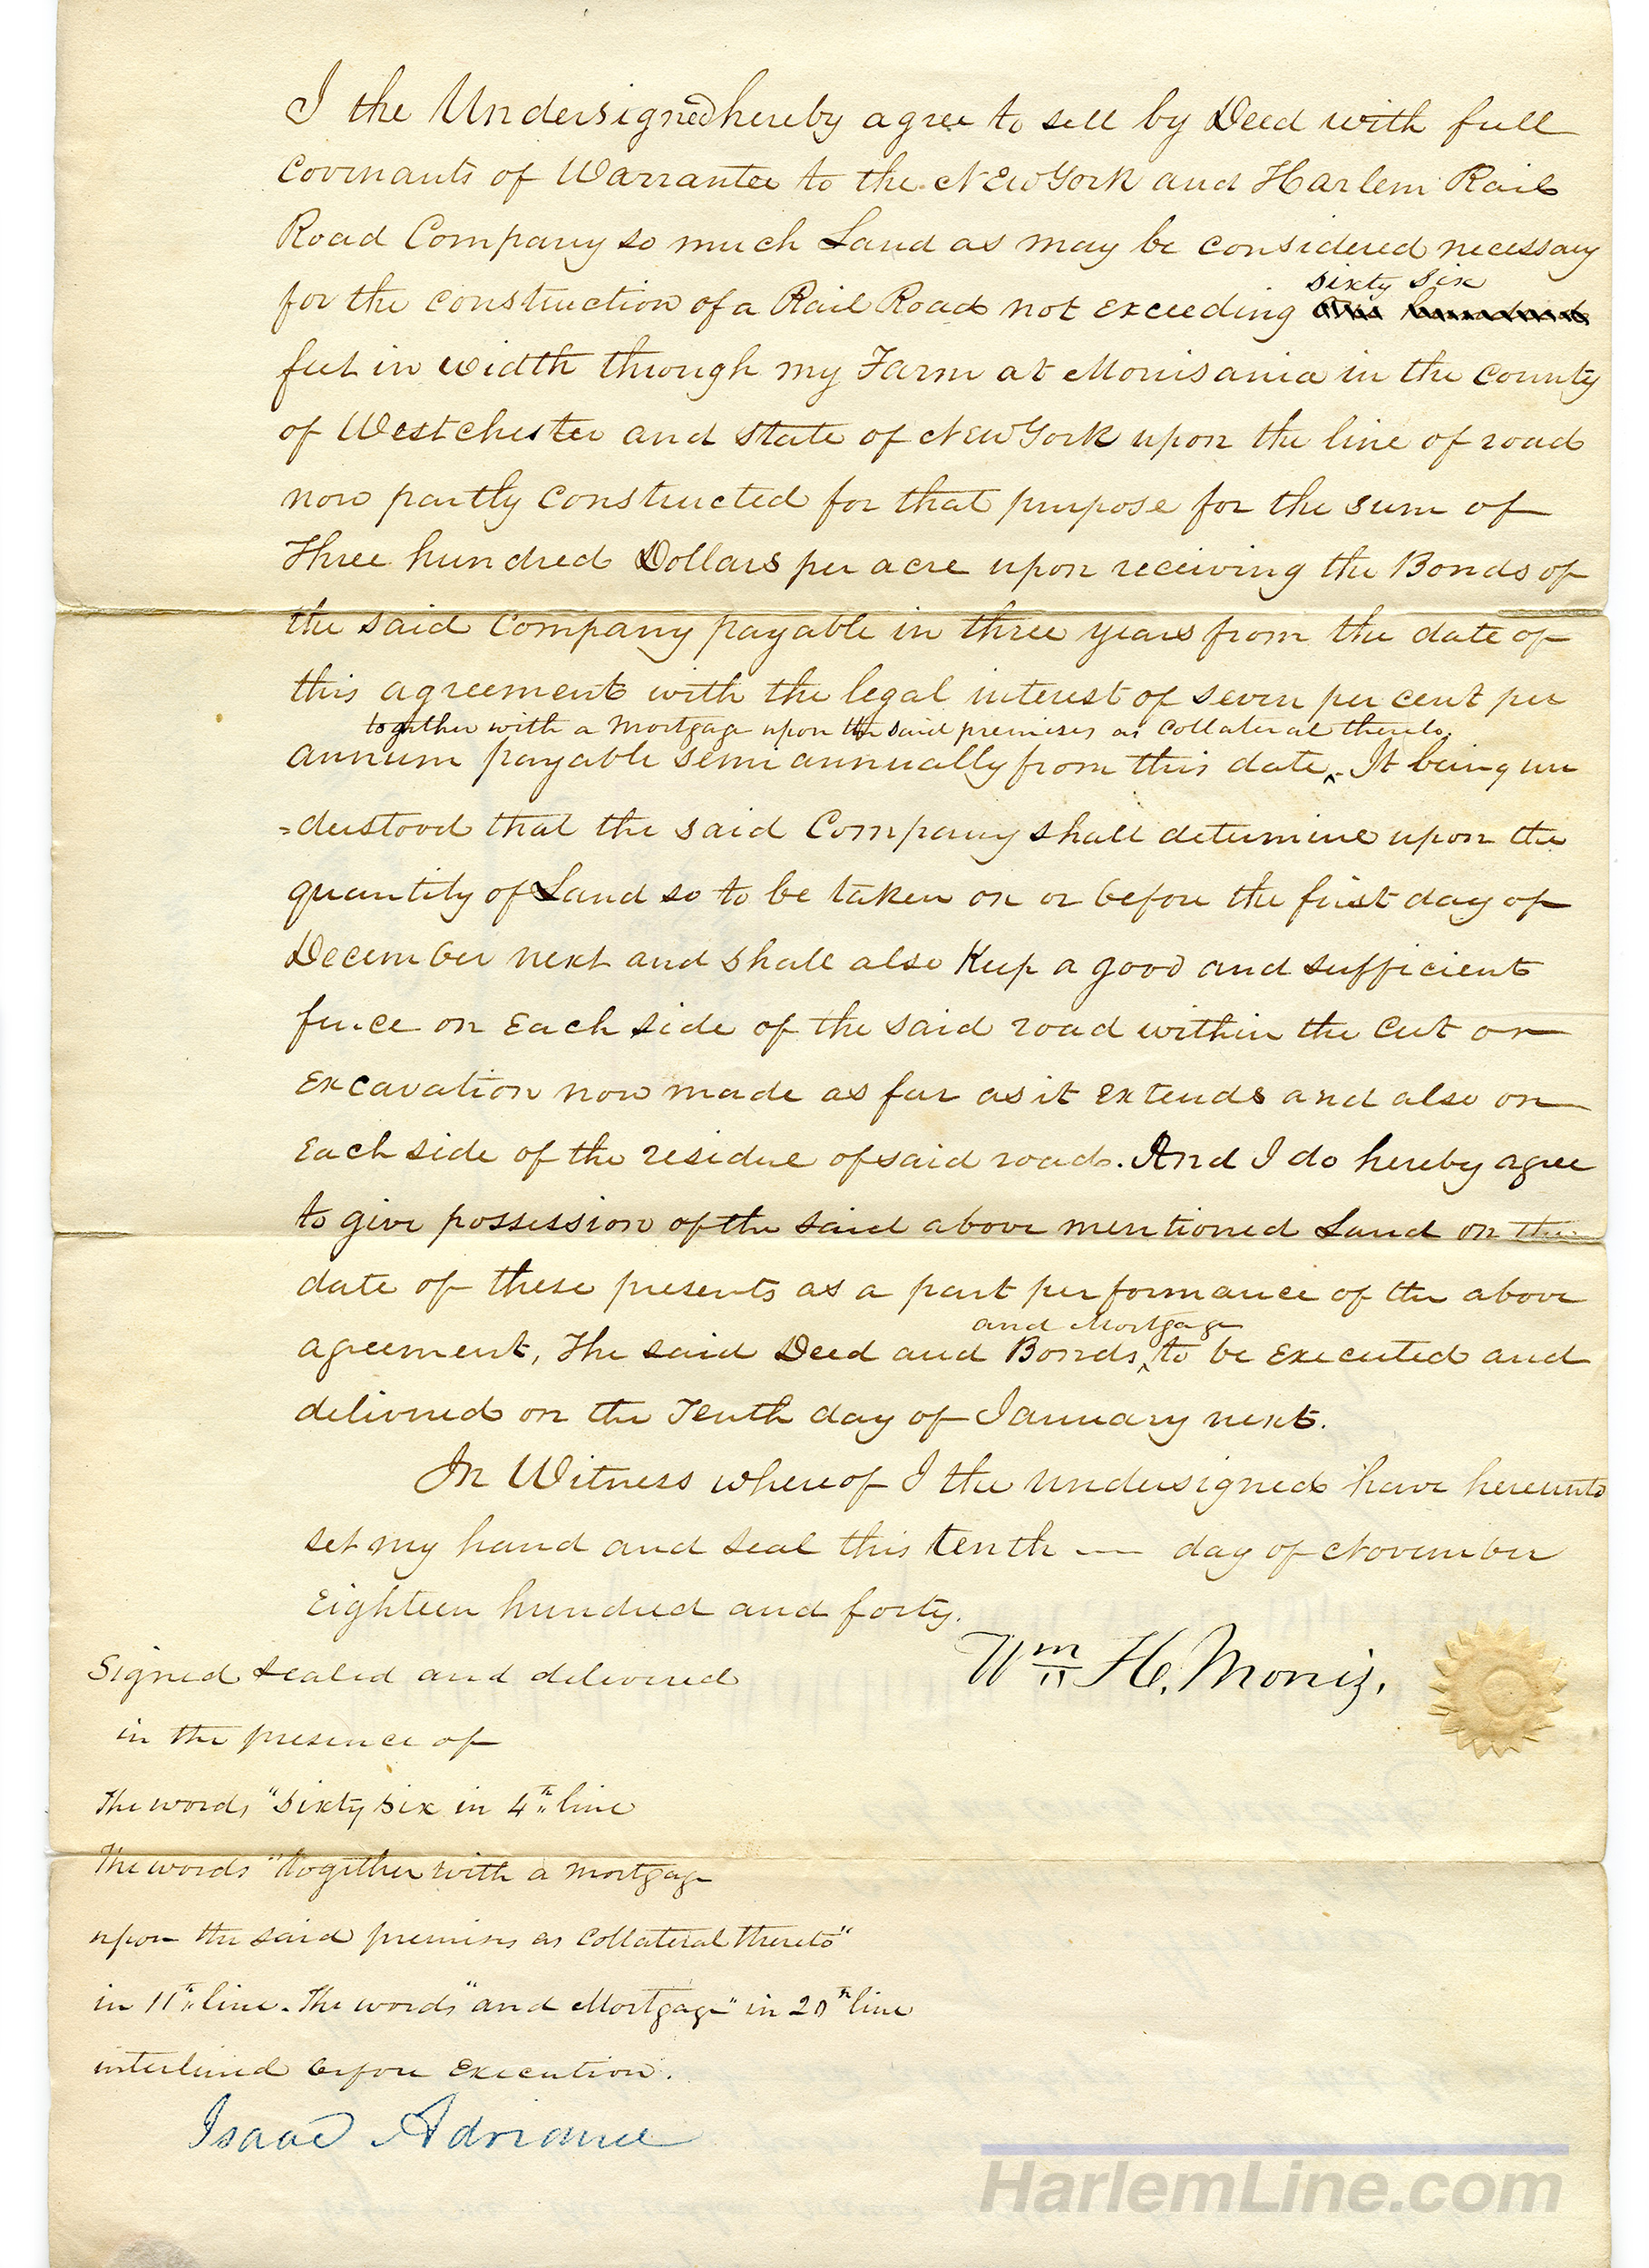 I the Undersigned hereby agree to sell by Deed with full
Covenants of Warrantee to the New York and Harlem Rail
Road Company so much Land as may be considered necessary
sixty six
for the construction of a Rail Road not exceeding
feet in width through my Farm at Morrisania in the County
of Westchester and State of New York upon the line of road
now partly constructed for that purpose for the sum of
Three hundred Dollars per acre upon receiving the Bonds of
the said Company payable in three years from the date of
this agreement with the legal interest of seven per cent per
together with a Mortgage upon the said premises as Collateral thereto.
annum payable semi annually from this date ^. It being un
=derstood that the said Company shall determine upon the
quantity of Land so to be taken on or before the first day of
December next and shall also Keep a good and sufficient
fence on Each side of the said road within the Cut or
Excavation now made as far as it Extends and also on
Each side of the residue of said road. And I do hereby agree
to give possession of the said above mentioned Land on the
date of these presents as a part performance of the above
and Mortgage
agreement, The said Deed and Bonds,^ to be Executed and
delivered on the Tenth day of January next.
In Witness whereof I the undersigned have hereunto
set my hand and seal this tenth — day of November
Eighteen hundred and forty.
Wm H. Morris.
Signed Sealed and delivered
in the presence of
The words "Sixty six in 4th line
The words "together with a Mortgage
upon the said premises as Collateral thereto"
in 11th line. The words "and Mortgage" in 20th line
interlined before Execution.
Isaac Adriance
HarlemLine.com